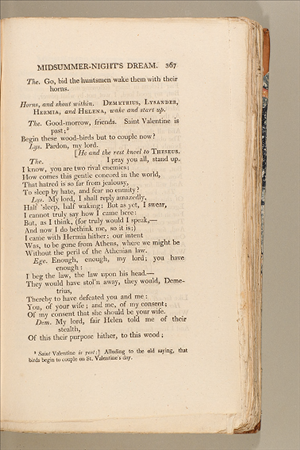 MIDSUMMER-NIGHT'S DREAM. 267
The. Go, bid the huntsmen wake them with their
horns.
Horns, and shout within. DEMETRIUS, LYSANDER,
HERMIA, and HELENA, wake and start up.
The. Good-morrow, friends. Saint Valentine is
past;⁸
Begin these wood-birds but to couple now?
Lys. Pardon, my lord.
[He and the rest kneel to THESEUS.
The. I pray you all, stand up.
I know, you are two rival enemies;
How comes this gentle concord in the world,
That hatred is so far from jealousy,
To sleep by hate, and fear no enmity?
Lys. My lord, I shall reply amazedly,
Half 'sleep, half waking: But as yet, I swear,
I cannot truly say how I came here:
But, as I think, (for truly would I speak,—
And now I do bethink me, so it is;)
I came with Hermia hither: our intent
Was, to be gone from Athens, where we might be
Without the peril of the Athenian law.
Ege. Enough, enough, my lord; you have
enough:
I beg the law, the law upon his head.—
They would have stol'n away, they would, Deme-
trius,
Thereby to have defeated you and me:
You, of your wife; and me, of my consent;
Of my consent that she should be your wife.
Dem. My lord, fair Helen told me of their
stealth,
Of this their purpose hither, to this wood;
⁸ Saint Valentine is past;] Alluding to the old saying, that
birds begin to couple on St. Valentine's day.